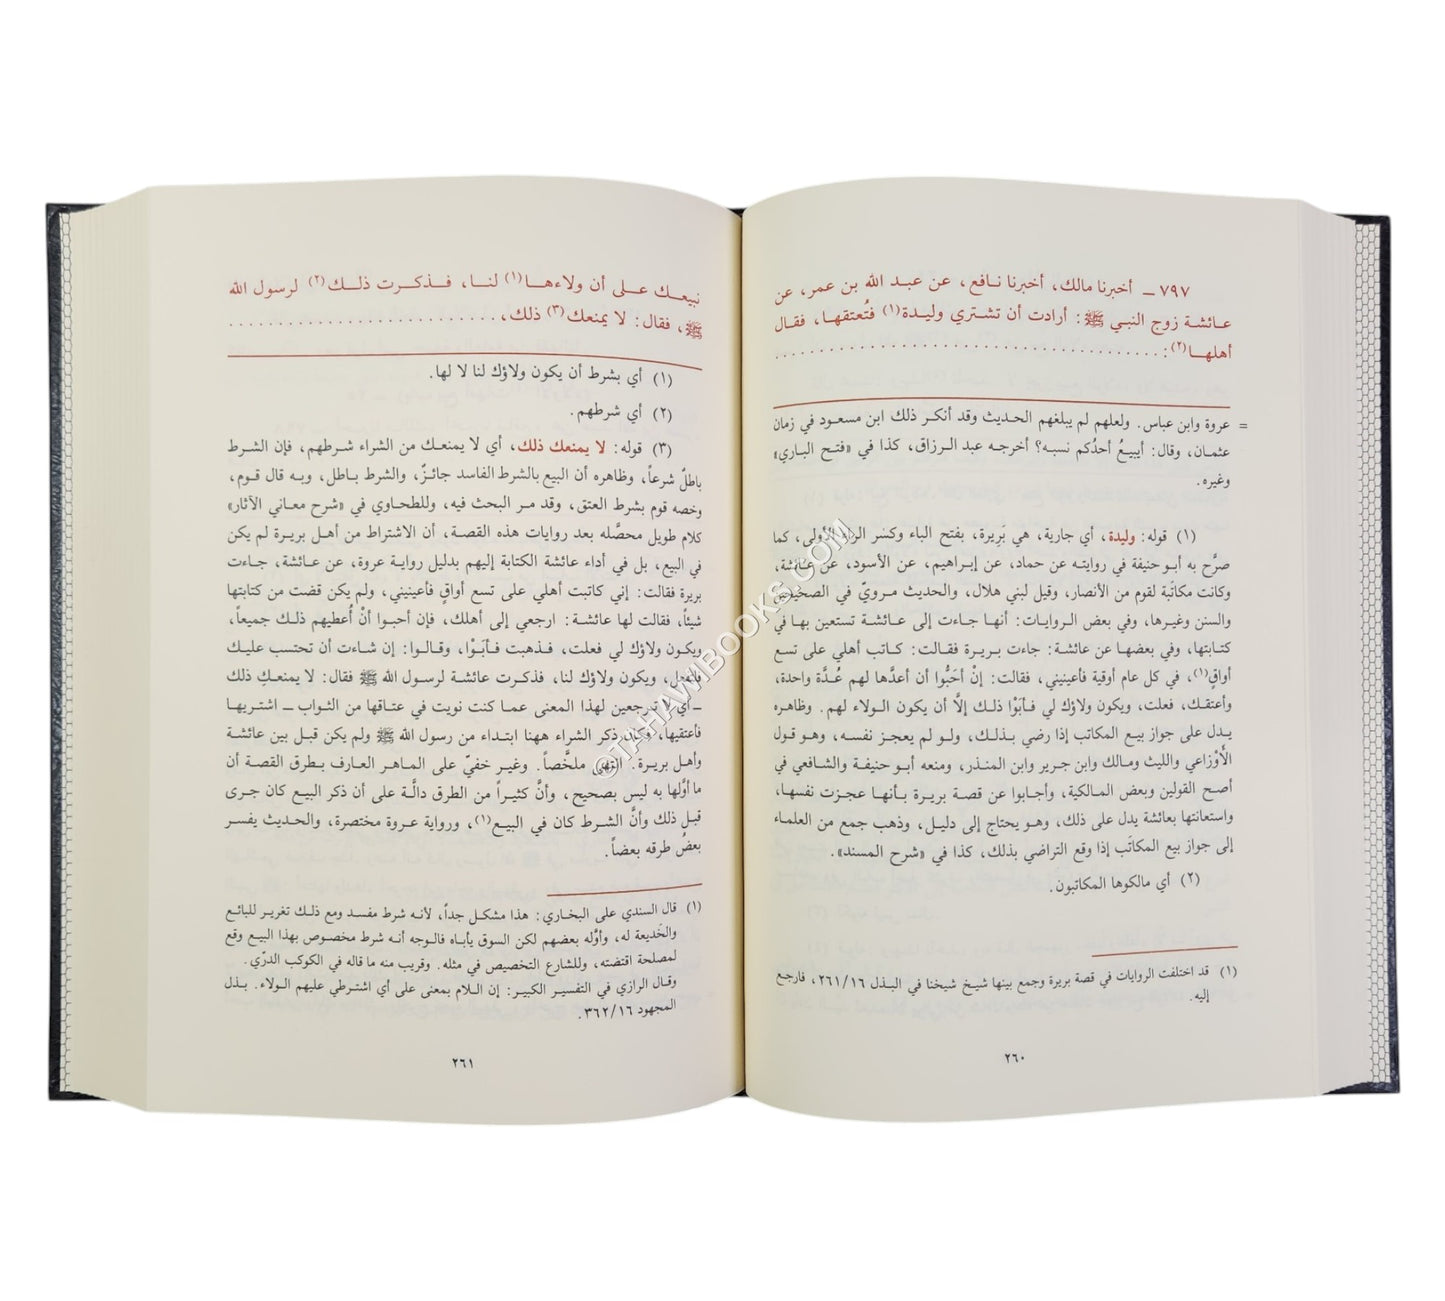 ٧٩٧ ــ أخبرنا مالك، أخبرنا نافع، عن عبد الله بن عمر، عن
عائشة زوج النبي ﷺ: أرادت أن تشتري وليدة(١) فتُعتقها، فقال
أهلها(٢): . . . . . . . . . . . . . . . . . . . . . . . . . . . . . . . . . . . . . . .
= عروة وابن عباس. ولعلهم لم يبلغهم الحديث وقد أنكر ذلك ابن مسعود في زمان
عثمان، وقال: أيبيعُ أحدُكم نسبه؟ أخرجه عبد الرزاق، كذا في «فتح الباري»
وغيره.
(١) قوله: وليدة، أي جارية، هي بَرِيرة، بفتح الباء وكسر الراء الأولى، كما
صرَّح به أبو حنيفة في روايته عن حماد، عن إبراهيم، عن الأسود، عن عائشة،
وكانت مكاتَبة لقوم من الأنصار، وقيل لبني هلال، والحديث مرويّ في الصحيحين
والسنن وغيرها، وفي بعض الروايات: أنها جاءت إلى عائشة تستعين بها في
كتابتها، وفي بعضها عن عائشة: جاءت بريرة فقالت: كاتب أهلي على تسع
أواقٍ(١)، في كل عام أوقية فأعينيني، فقالت: إنْ أحَبُّوا أن أعدَّها لهم عُدَّة واحدة،
وأعتقك، فعلت، ويكون ولاؤك لي فأبَوْا ذلك إلَّا أن يكون الولاء لهم. وظاهره
يدل على جواز بيع المكاتب إذا رضي بذلك، ولو لم يعجز نفسه، وهو قول
الأَوْزاعي والليث ومالك وابن جرير وابن المنذر، ومنعه أبو حنيفة والشافعي في
أصح القولين وبعض المالكية، وأجابوا عن قصة بريرة بأنها عجزت نفسها،
واستعانتها بعائشة يدل على ذلك، وهو يحتاج إلى دليل، وذهب جمع من العلماء
إلى جواز بيع المكاتَب إذا وقع التراضي بذلك، كذا في «شرح المسند».
(٢) أي مالكوها المكاتبون.
(١) قد اختلفت الروايات في قصة بريرة وجمع بينها شيخ شيخنا في البذل ٢٦١/١٦، فارجع
إليه.
٢٦٠
نبيعك على أن ولاءها(١) لنا، فذكرت ذلك(٢) لرسول الله
ﷺ، فقال: لا يمنعك(٣) ذلك، . . . . . . . . . . . . . . . . . . . . . . . . . . .
(١) أي بشرط أن يكون ولاؤك لنا لا لها.
(٢) أي شرطهم.
(٣) قوله: لا يمنعك ذلك، أي لا يمنعك من الشراء شرطهم، فإن الشرط
باطلٌ شرعاً، وظاهره أن البيع بالشرط الفاسد جائزٌ، والشرط باطل، وبه قال قوم،
وخصه قوم بشرط العتق، وقد مر البحث فيه، وللطحاوي في «شرح معاني الآثار»
كلام طويل محصَّله بعد روايات هذه القصة، أن الاشتراط من أهل بريرة لم يكن
في البيع، بل في أداء عائشة الكتابة إليهم بدليل رواية عروة، عن عائشة، جاءت
بريرة فقالت: إني كاتبت أهلي على تسع أواقٍ فأعينيني، ولم يكن قضت من كتابتها
شيئاً، فقالت لها عائشة: ارجعي إلى أهلك، فإن أحبوا أنْ أُعطيهم ذلك جميعاً،
ويكون ولاؤك لي فعلت، فذهبت فأبَوْا، وقالوا: إن شاءت أن تحتسب عليك
فلتفعل، ويكون ولاؤك لنا، فذكرت عائشة لرسول الله ﷺ فقال: لا يمنعكِ ذلك
ــ أي لا ترجعين لهذا المعنى عما كنت نويت في عتاقها من الثواب ــ اشتريها
فأعتقيها، وكان ذكر الشراء ههنا ابتداء من رسول الله ﷺ ولم يكن قبل بين عائشة
وأهل بريرة. انتهى ملخَّصاً. وغير خفيّ على الماهر العارف بطرق القصة أن
ما أوَّلها به ليس بصحيح، وأنَّ كثيراً من الطرق دالَّة على أن ذكر البيع كان جرى
قبل ذلك وأنَّ الشرط كان في البيع(١)، ورواية عروة مختصرة، والحديث يفسر
بعضُ طرقه بعضاً.
(١) قال السندي على البخاري: هذا مشكل جداً، لأنه شرط مفسد ومع ذلك تغرير للبائع
والخَديعة له، وأوَّله بعضهم لكن السوق يأباه فالوجه أنه شرط مخصوص بهذا البيع وقع
لمصلحة اقتضته، وللشارع التخصيص في مثله. وقريب منه ما قاله في الكوكب الدرّي.
وقال الرازي في التفسير الكبير: إن اللام بمعنى على أي اشترطي عليهم الولاء. بذل
المجهود ٣٦٢/١٦.
٢٦١
©TAHAWIBOOKS.COM